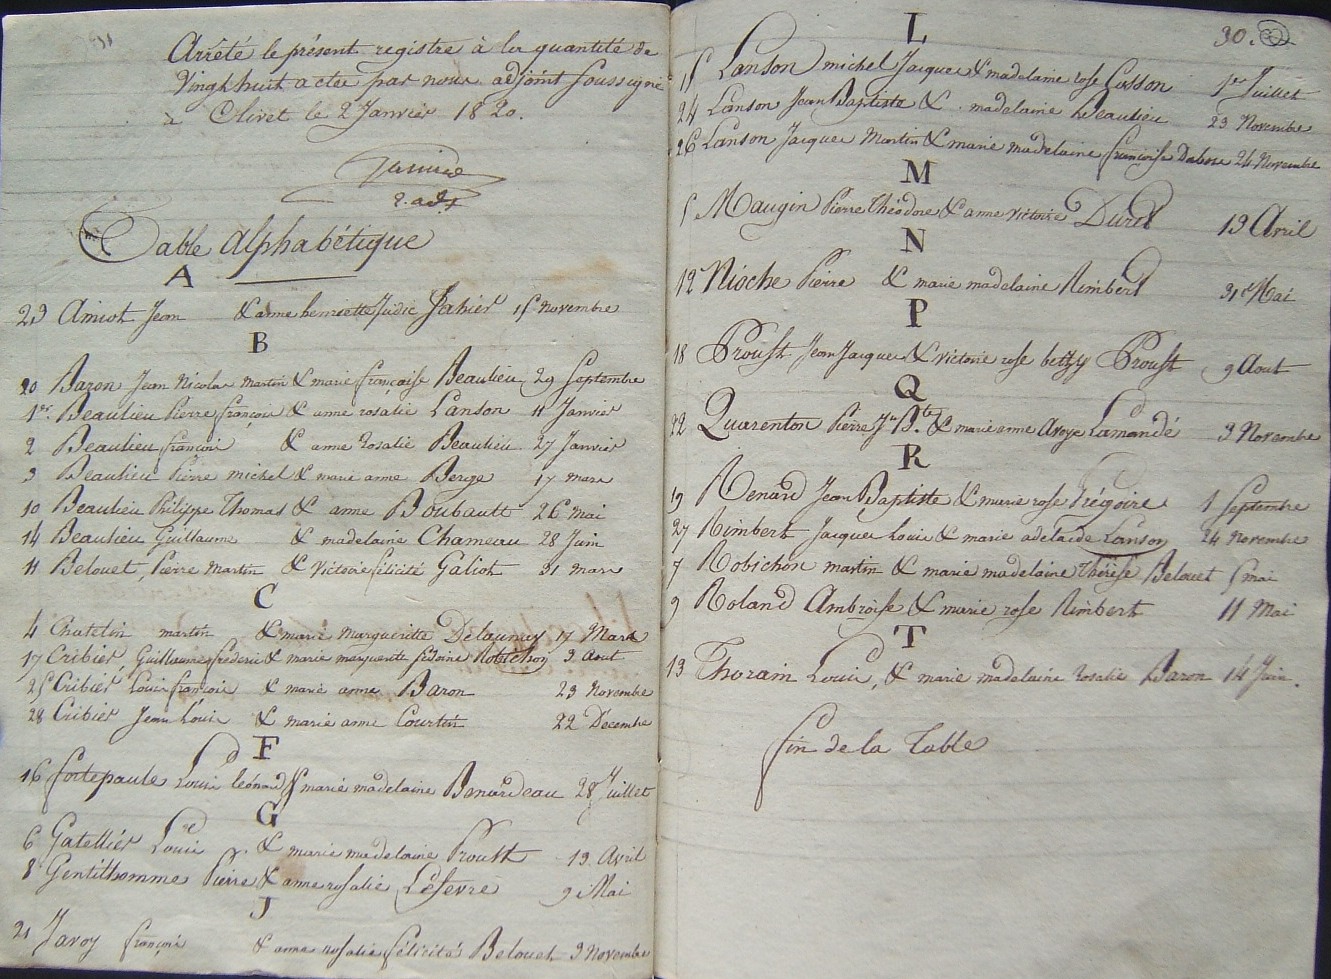 Arrêté le présent registre à la quantité de
Vingt huit actes par nous adjoint soussigné
à Olivet le 2 Janvier 1820.
2. adj.
Table alphabétique
A
23 Amiot Jean & anne henriette Judic Jahier 15 Novembre
B
20 Baron Jean Nicolas martin & marie françoise Beaulieu 29 Septembre
1er. Beaulieu Pierre françois & anne rosalie Lanson 11 Janvier
2 Beaulieu françois & anne rosalie Beaulieu 27 Janvier
3 Beaulieu Pierre michel & marie anne Berge 17 mars
10 Beaulieu Philippe Thomas & anne Boubault 26 Mai
14 Beaulieu Guillaume & madelaine Chameau 28 Juin
11 Belouet, Pierre Martin & Victoire félicité Galiot 31 mars
C
4 Chatelin martin & marie Margueritte Delaunay 17 Mars
17 Cribier, Guillaume frederic & marie marguerite Robichon 3 Aout
25 Cribier Louis françois & marie anne Baron 23 Novembre
28 Cribier Jean Louis & marie anne Courtin 22 Décembre
F
16 fortepaule Louis léonard & marie madelaine Benardeau 28 Juillet
G
6 Gatellier Louis & marie madelaine Proust 13 Avril
8 Gentilhomme Pierre & anne rosalie Lefevre 9 Mai
J
21 Javoy françois & anne rosalie félicité Belouet 3 Novembre
30.
L
15 Lanson michel Jacques & madelaine rose Cosson 1er Juillet
24 Lanson Jean Baptiste & madelaine Beaulieu 23 Novembre
26 Lanson Jacques Martin & marie madelaine françoise 24 Novembre
M
5 Maugin Pierre Théodore & anne Victoire Duret 13 Avril
N
12 Nioche Pierre & marie madelaine Rimbert 31 Mai
P
18 Proust Jean Jacques & victoire rose betsy Proust 9 Aout
Q
22 Quarenton Pierre Jn Bte & marie anne Avoye Lamandé 3 Novembre
R
19 Renard Jean Baptiste & marie rose Frégoire 1 Septembre
27 Rimbert Jacques Louis & marie adelaide Lanson 24 Novembre
7 Robichon martin & marie madelaine Thérèse Belouet 5 mai
9 Roland Ambroise & marie rose Rimbert 11 Mai
T
13 Thorain Louis, & marie madelaine rosalie Baron 14 Juin.
fin de la Table